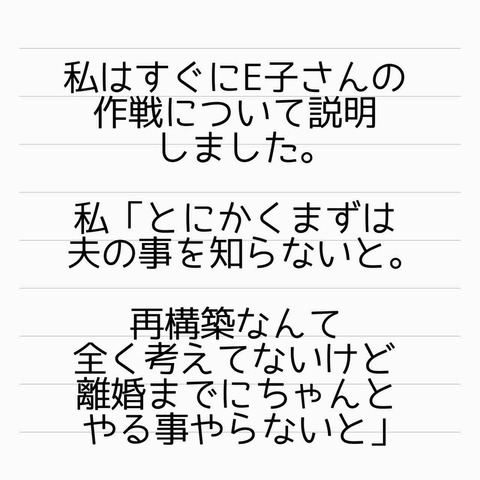 私はすぐにE子さんの
作戦について説明
しました。
私「とにかくまずは
夫の事を知らないと。
再構築なんて
全く考えてないけど
離婚までにちゃんと
やる事やらないと」